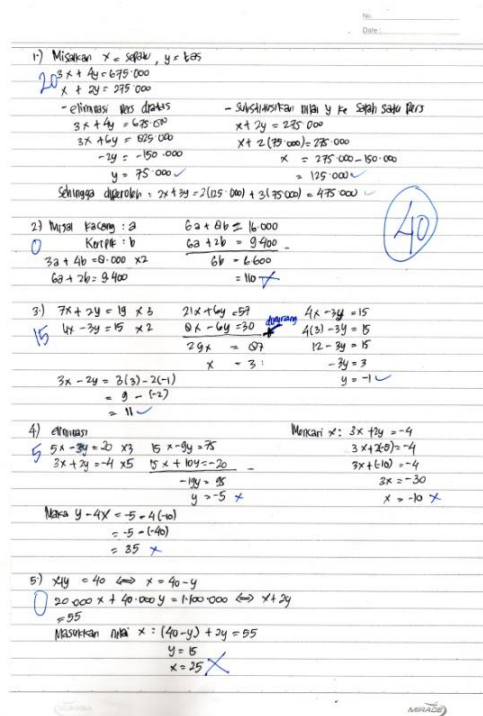 No.
Date:
1.) Misalkan x = sepatu, y = tas
20
3x + 4y = 675.000
x + 2y = 275.000
- eliminasi pers diatas
3x + 4y = 675.000
3x + 6y = 825.000
-2y = -150.000
y = 75.000 ✓
- Substitusikan nilai y ke salah satu pers
x + 2y = 275.000
x + 2(75.000) = 275.000
x = 275.000 - 150.000
= 125.000 ✓
Sehingga diperoleh : 2x + 3y = 2(125.000) + 3(75.000) = 475.000 ✓
40
2) Misal kacang : a
0
Keripik : b
3a + 4b = 8.000 x2
6a + 2b = 9.400
6a + 8b = 16.000
6a + 2b = 9.400
6b = 6.600
= 110
3.) 7x + 2y = 19 x3
4x - 3y = 15 x2
15
21x + 6y = 57
8x - 6y = 30
29x = 87
x = 3
4x - 3y = 15
4(3) - 3y = 15
12 - 3y = 15
-3y = 3
y = -1 ✓
3x - 2y = 3(3) - 2(-1)
= 9 - (-2)
= 11 ✓
4) eliminasi
5
5x - 3y = 20 x3
3x + 2y = -4 x5
15x - 9y = 75
15x + 10y = -20
-19y = 95
y = -5 x
Mencari x : 3x + 2y = -4
3x + 2(-5) = -4
3x + (-10) = -4
3x = -30
x = -10 x
Maka y - 4x = -5 - 4(-10)
= -5 - (-40)
= 35 x
5.) x+y = 40 ⟺ x = 40 - y
0
20.000 x + 40.000 y = 1.100.000 ⟺ x + 2y
= 55
Masukkan nilai x : (40-y) + 2y = 55
y = 15
x = 25
MIRAGE